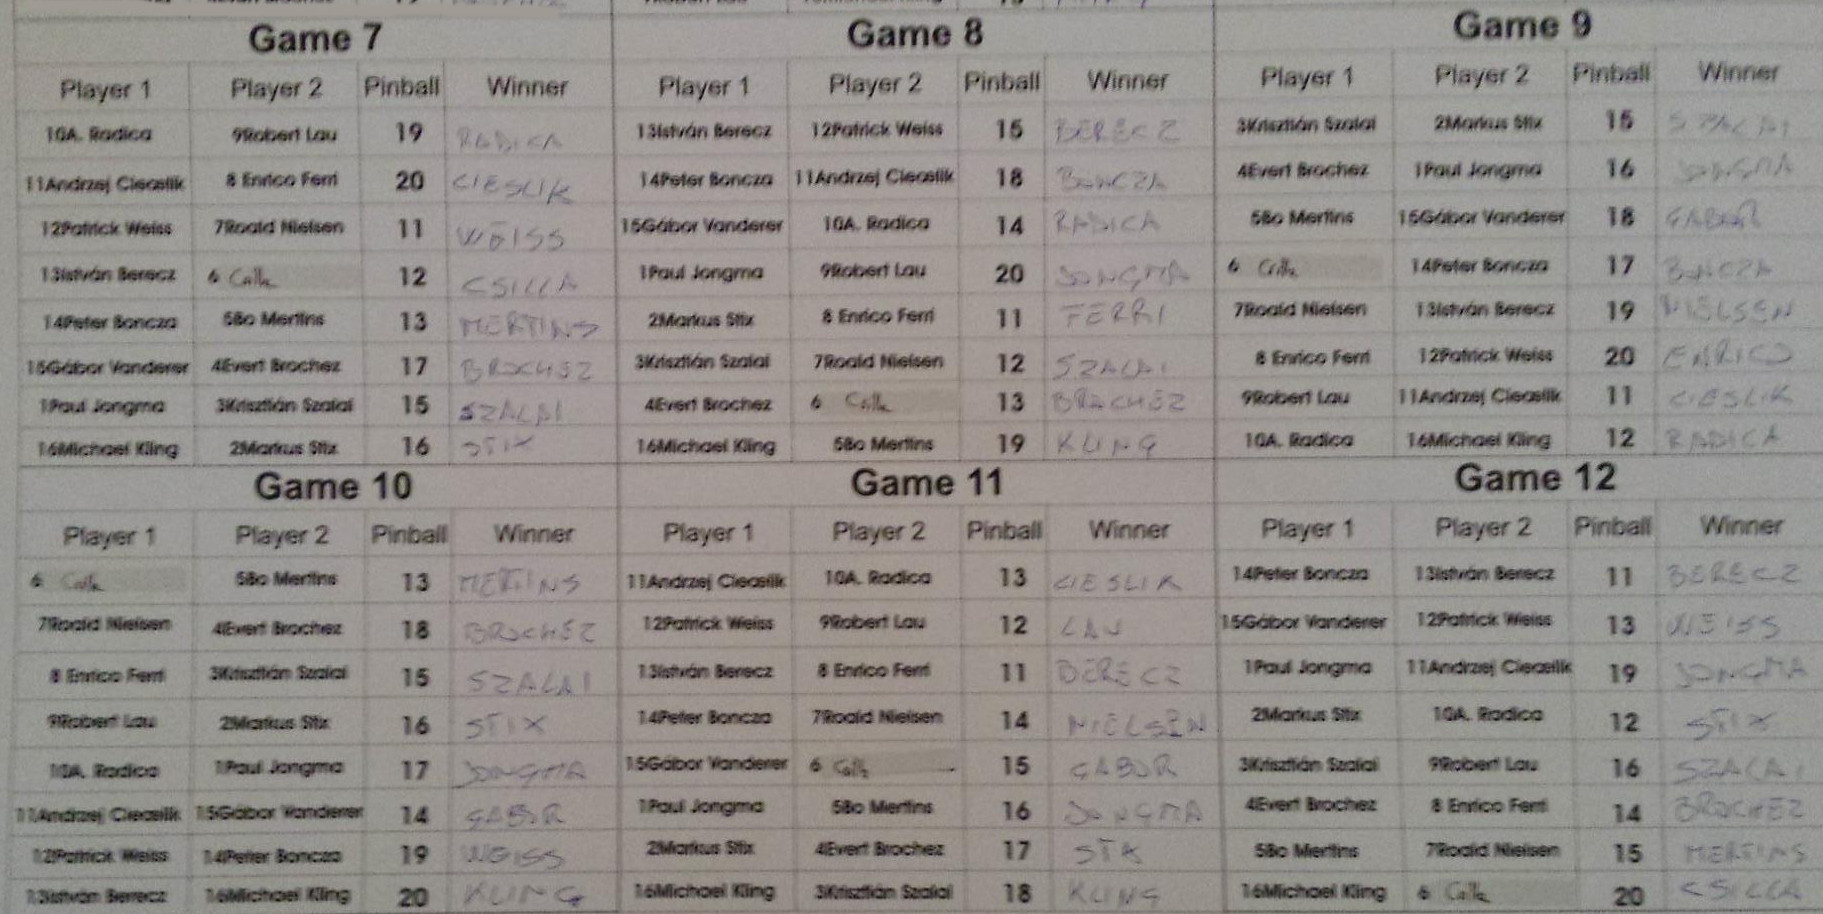 Game 7
Player 1 Player 2 Pinball Winner
10A. Radica 9Robert Lau 19 RADICA
11Andrzej Cieaslik 8 Enrico Ferri 20 CIESLIK
12Patrick Weiss 7Roald Nielsen 11 WEISS
13István Berecz 6 Csilla 12 CSILLA
14Peter Boncza 5Bo Mertins 13 MERTINS
15Gábor Vanderer 4Evert Brochez 17 BROCHEZ
1Paul Jongma 3Krisztián Szalai 15 SZALAI
16Michael Kling 2Markus Stix 16 STIX
Game 8
Player 1 Player 2 Pinball Winner
13István Berecz 12Patrick Weiss 15 BERECZ
14Peter Boncza 11Andrzej Cieaslik 18 BONCZA
15Gábor Vanderer 10A. Radica 14 RADICA
1Paul Jongma 9Robert Lau 20 JONGMA
2Markus Stix 8 Enrico Ferri 11 FERRI
3Krisztián Szalai 7Roald Nielsen 12 SZALAI
4Evert Brochez 6 Csilla 13 BROCHEZ
16Michael Kling 5Bo Mertins 19 KLING
Game 9
Player 1 Player 2 Pinball Winner
3Krisztián Szalai 2Markus Stix 15 SZALAI
4Evert Brochez 1Paul Jongma 16 JONGMA
5Bo Mertins 15Gábor Vanderer 18 GABOR
6 Csilla 14Peter Boncza 17 BONCZA
7Roald Nielsen 13István Berecz 19 NIELSEN
8 Enrico Ferri 12Patrick Weiss 20 ENRICO
9Robert Lau 11Andrzej Cieaslik 11 CIESLIK
10A. Radica 16Michael Kling 12 RADICA
Game 10
Player 1 Player 2 Pinball Winner
6 Csilla 5Bo Mertins 13 MERTINS
7Roald Nielsen 4Evert Brochez 18 BROCHEZ
8 Enrico Ferri 3Krisztián Szalai 15 SZALAI
9Robert Lau 2Markus Stix 16 STIX
10A. Radica 1Paul Jongma 17 JONGMA
11Andrzej Cieaslik 15Gábor Vanderer 14 GABOR
12Patrick Weiss 14Peter Boncza 19 WEISS
13István Berecz 16Michael Kling 20 KLING
Game 11
Player 1 Player 2 Pinball Winner
11Andrzej Cieaslik 10A. Radica 13 CIESLIK
12Patrick Weiss 9Robert Lau 12 LAU
13István Berecz 8 Enrico Ferri 11 BERECZ
14Peter Boncza 7Roald Nielsen 14 NIELSEN
15Gábor Vanderer 6 Csilla 15 GABOR
1Paul Jongma 5Bo Mertins 16 JONGMA
2Markus Stix 4Evert Brochez 17 STIX
16Michael Kling 3Krisztián Szalai 18 KLING
Game 12
Player 1 Player 2 Pinball Winner
14Peter Boncza 13István Berecz 11 BERECZ
15Gábor Vanderer 12Patrick Weiss 13 WEISS
1Paul Jongma 11Andrzej Cieaslik 19 JONGMA
2Markus Stix 10A. Radica 12 STIX
3Krisztián Szalai 9Robert Lau 16 SZALAI
4Evert Brochez 8 Enrico Ferri 14 BROCHEZ
5Bo Mertins 7Roald Nielsen 15 MERTINS
16Michael Kling 6 Csilla 20 CSILLA